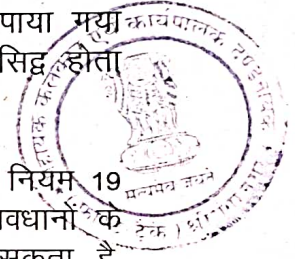 पाया गया
सिद्व होता
नियम 19
वधानों के
सकता है
कार्यपालक दण्डनायक
सत्यमेव जयते